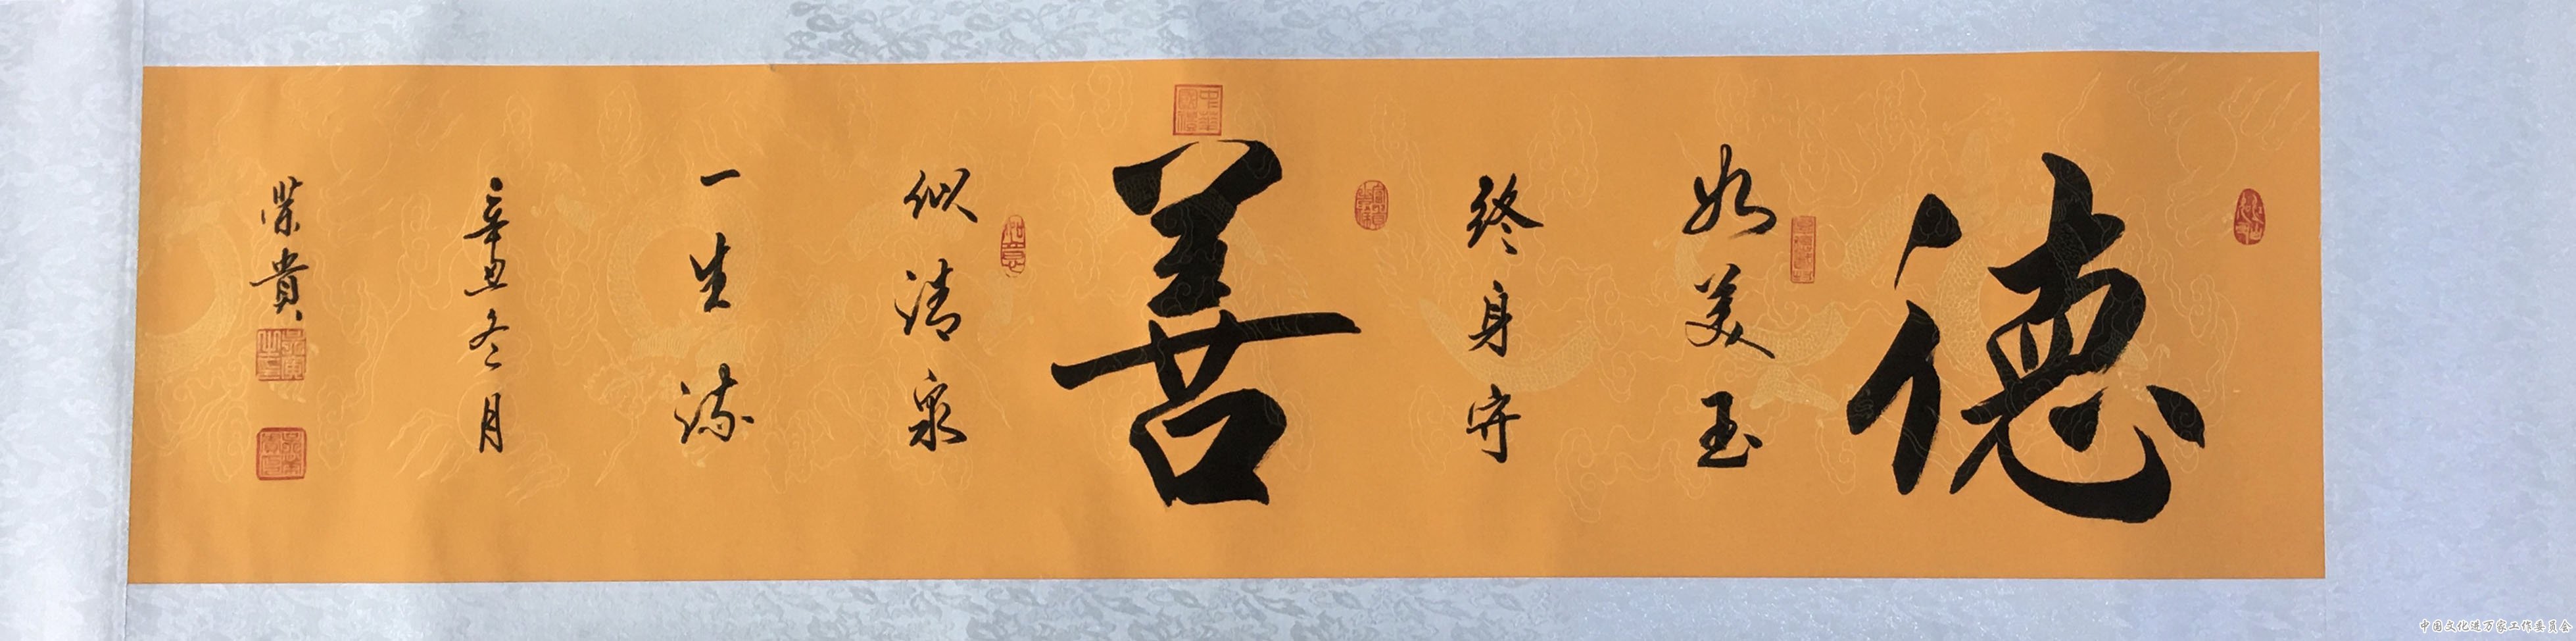 德
如美玉
终身守
善
似清泉
一生流
辛丑冬月
荣贵
中国文化进万家工作委员会